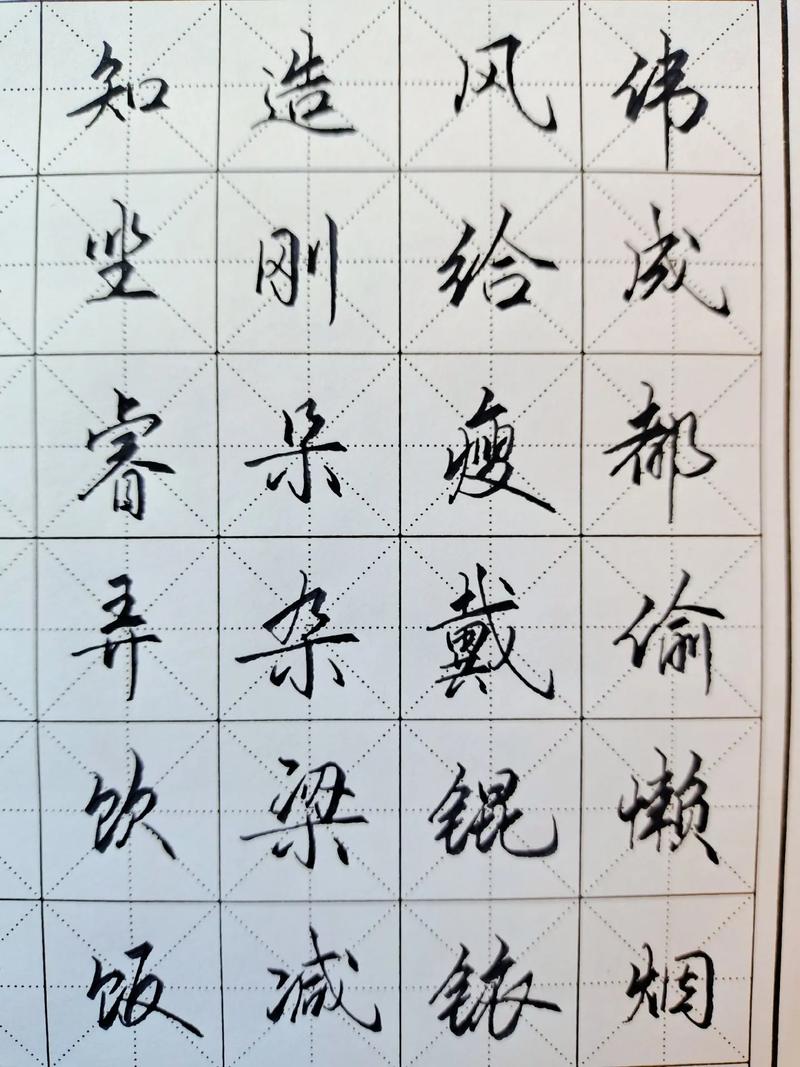 伟成都偷懒烟
风给瘦戴锟铱
造刚朵杂梁减
知坐睿弄饮饭